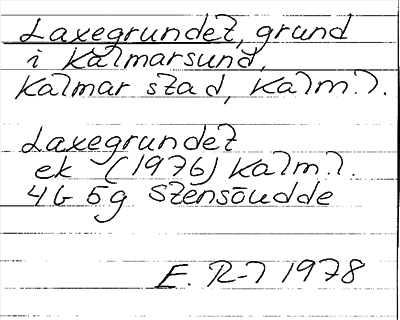 Laxegrundet, grund
i Kalmarsund,
Kalmar stad, Kalm.l.
Laxegrundet
ek (1976) Kalm.l.
4G 5g Stensöudde
E. R-l 1978